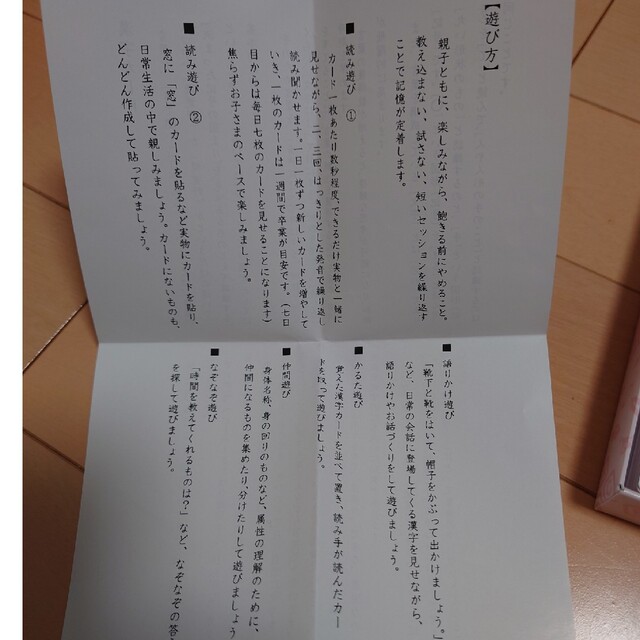 【遊び方】
親子ともに、楽しみながら、飽きる前にやめること。
教え込まない、試さない、短いセッションを繰り返す
ことで記憶が定着します。
■ 読み遊び ①
カード一枚あたり数秒程度、できるだけ実物と一緒に
見せながら、二、三回、はっきりとした発音で繰り返し
読み聞かせます。一日一枚ずつ新しいカードを増やして
いき、一枚のカードは一週間で卒業が目安です。(七日
目からは毎日七枚のカードを見せることになります)
焦らずお子さまのペースで楽しみましょう。
■ 読み遊び ②
窓に「窓」のカードを貼るなど実物にカードを貼り、
日常生活の中で親しみましょう。カードにないものも、
どんどん作成して貼ってみましょう。
■ 語りかけ遊び
「靴下と靴をはいて、帽子をかぶって出かけましょう。」
など、日常の会話に登場してくる漢字を見せながら、
語りかけやお話づくりをして遊びましょう。
■ かるた遊び
覚えた漢字カードを並べて置き、読み手が読んだカー
ドを取って遊びましょう。
■ 仲間遊び
身体名称、身の回りのものなど、属性の理解のために、
仲間になるものを集めたり、分けたりして遊びましょう
■ なぞなぞ遊び
「時間を教えてくれるものは?」など、なぞなぞの答
を探して遊びましょう。